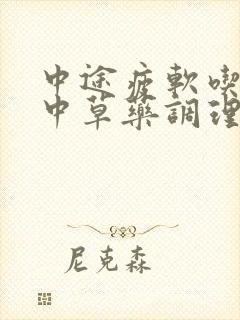 中途疲軟喫
中草藥調理
尼克森